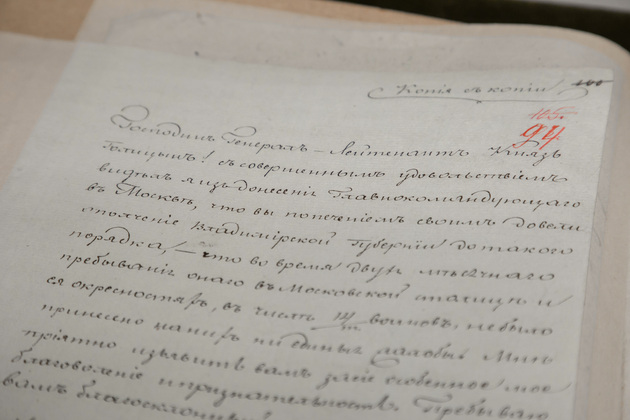 Копія съ копіи
105
94
Господинъ Генералъ-Лейтенантъ Князь
Голицынъ! съ совершеннымъ удовольствіемъ
видѣлъ я изъ донесеній Главнокомандующаго
въ Москвѣ, что вы попеченіемъ своимъ довели
ополченіе Владимірской Губерніи до такого
порядка, – что во время двухъ мѣсячнаго
пребыванія онаго въ Московской столицѣ и
ея окресностяхъ, въ числѣ воиновъ, не было
принесено на нихъ ни единыя жалобы. Мнѣ
пріятно изъявить вамъ за сіе особенное мое
благоволеніе и признательность. Пребываю
вамъ благосклонный